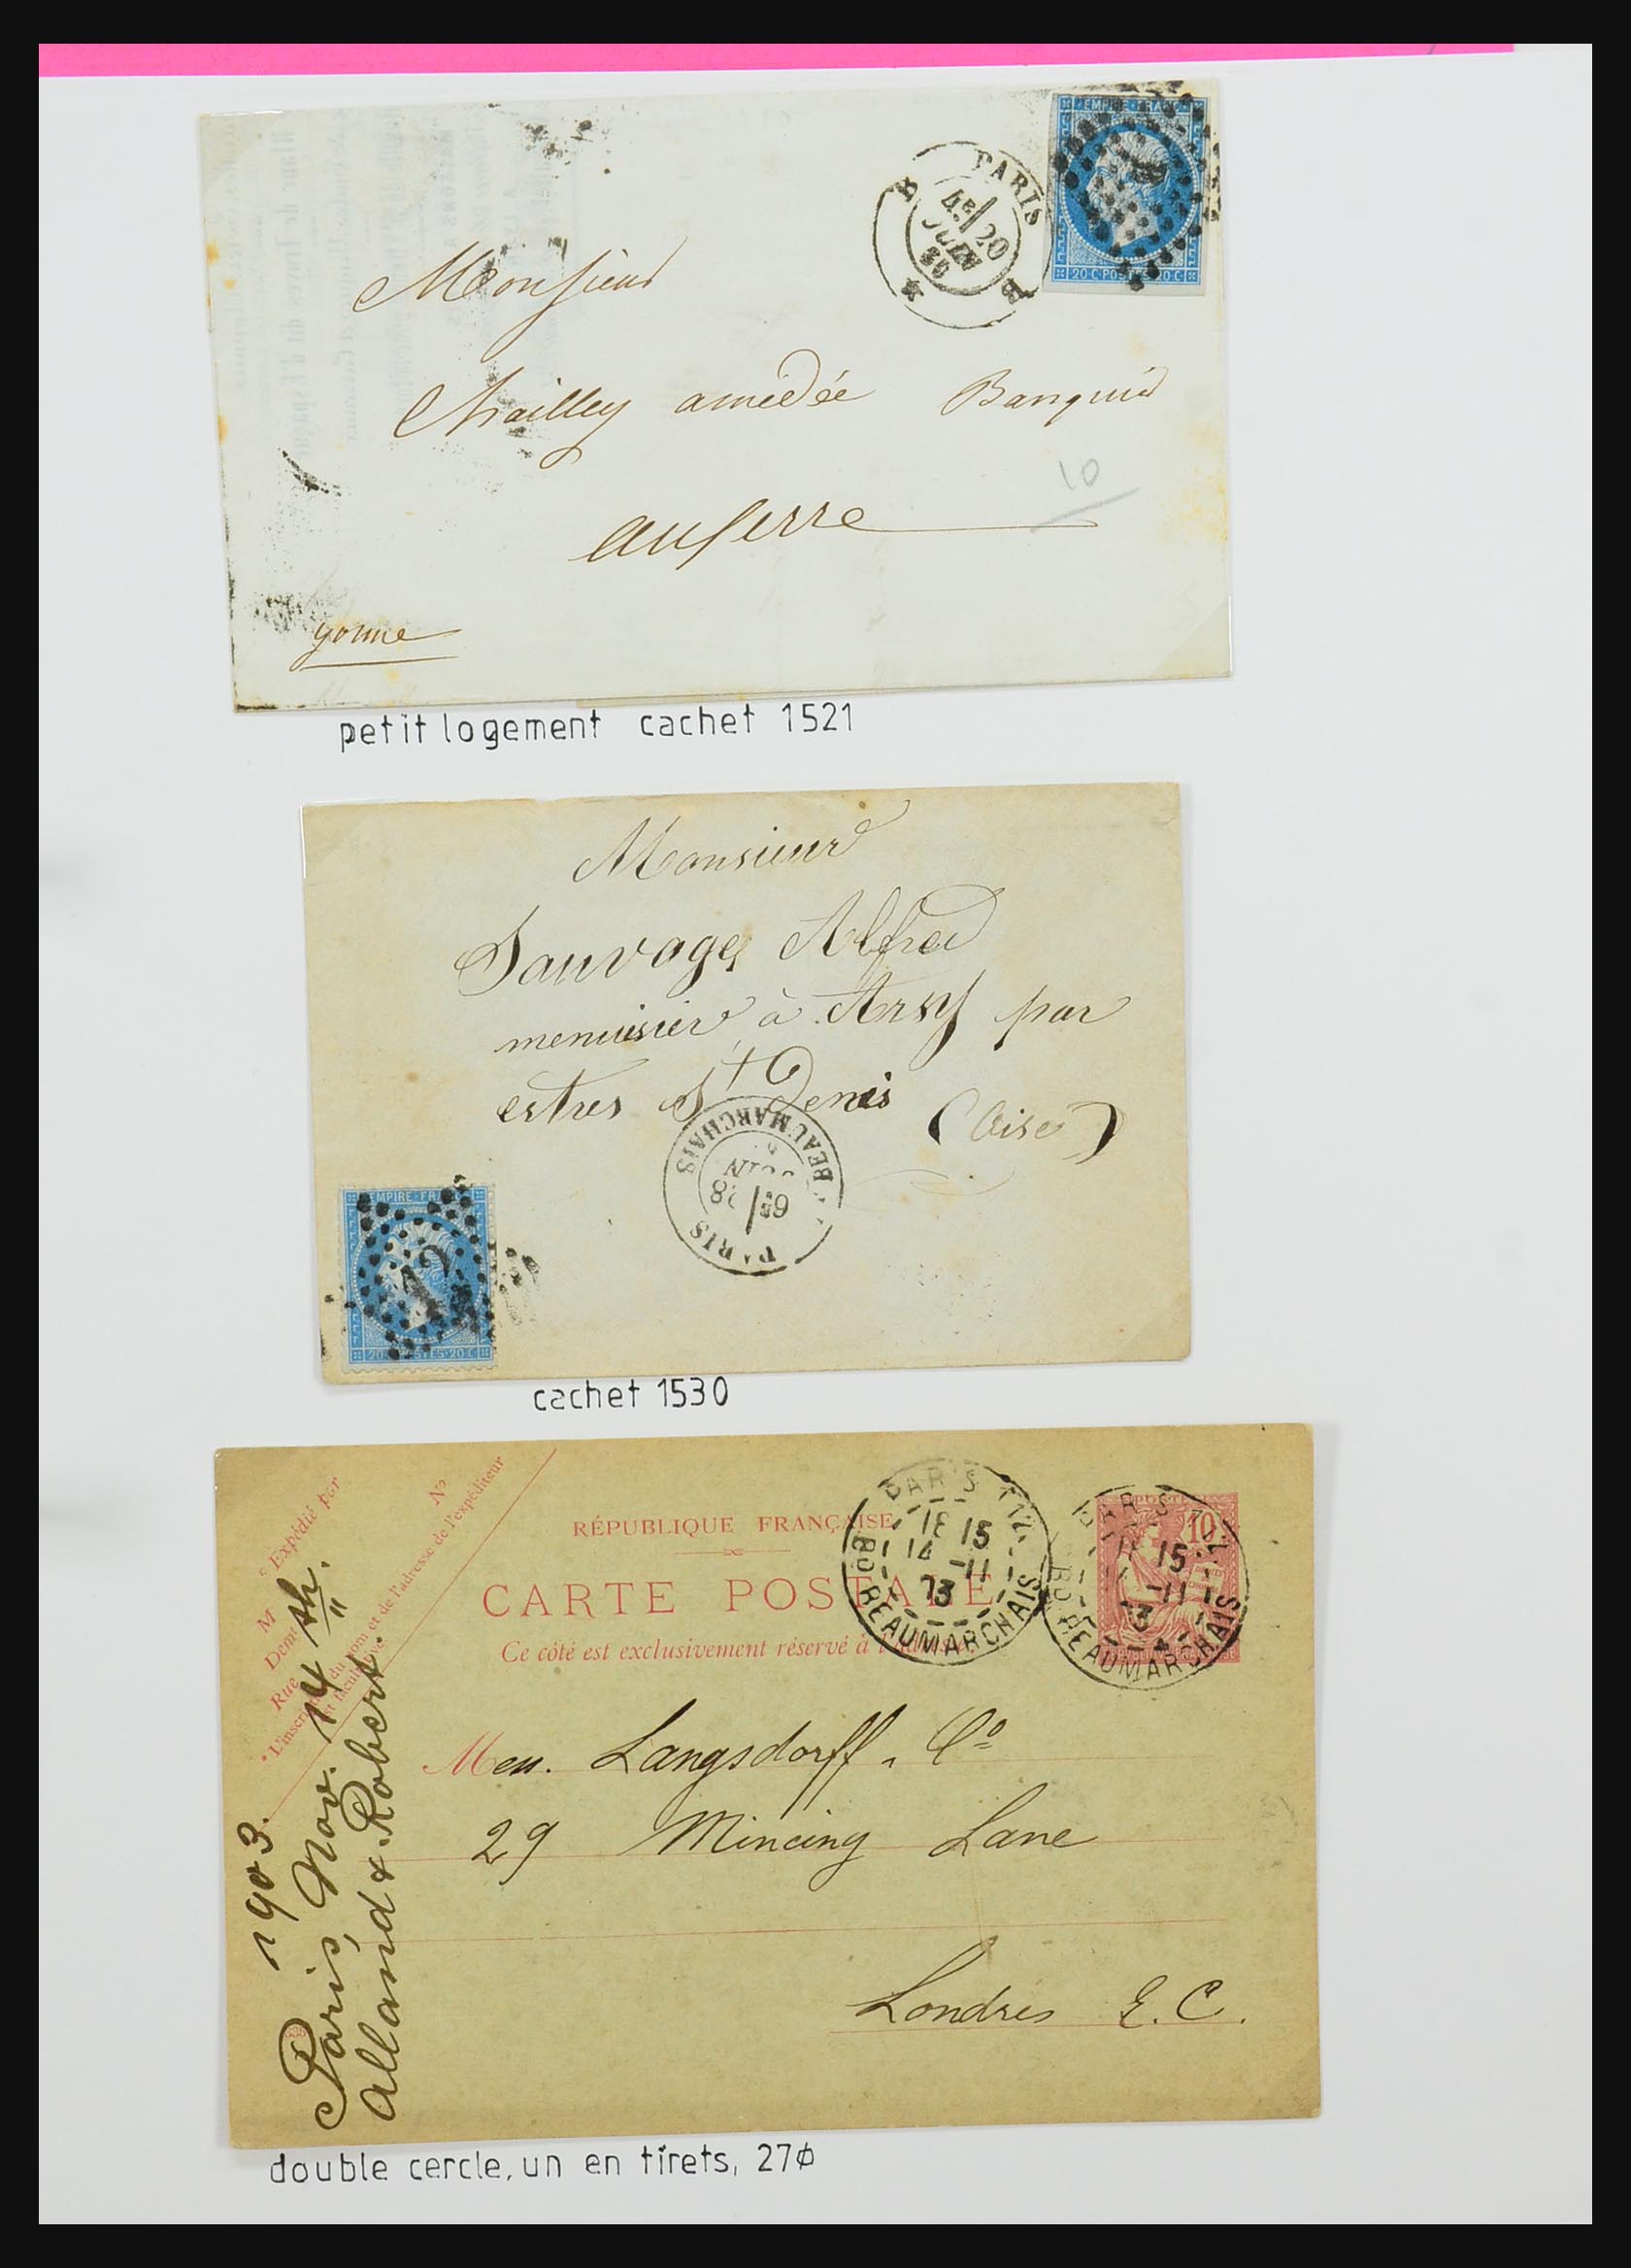 EMPIRE FRANC
20 C POSTES 20 C
PARIS
B B
4E 20
JUIN
60
Monsieur
Chailley amédée Banquier
auxerre
10
yonne
petit logement cachet 1521
Monsieur
Sauvage Alfred
menuisier à Arsy par
estrés St Denis (Oise)
PARIS
BEAUMARCHAIS
6E 28
JUIN
EMPIRE FRANC
12
20 C POSTES 20 C
cachet 1530
M * Expédié par
Demt
Rue
No
* L'inscription du nom et de l'adresse de l'expéditeur
est facultative.
RÉPUBLIQUE FRANÇAISE
CARTE POSTALE
Ce côté est exclusivement réservé à l'adresse
PARIS 112
18 15
14 -11
03
BD BEAUMARCHAIS
POSTES
10
PARIS 112
15
-11
03
BD BEAUMARCHAIS
1903.
Paris, Nov. 14 th.
Alland & Robert.
Mess. Langsdorff & Co
29 Mincing Lane
Londres E.C.
double cercle, un en tirets, 27ø